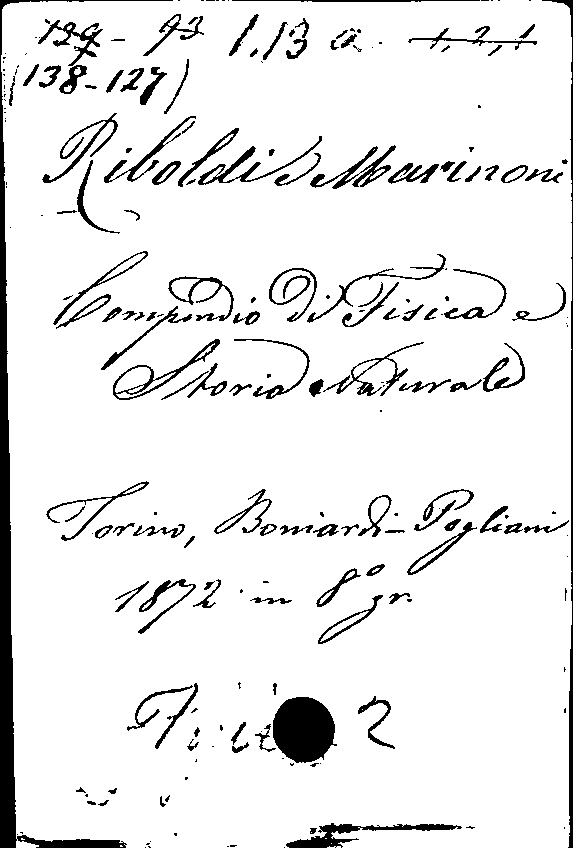 129 - 93 1.13 a. 1, 2, 1
(138-127)
Riboldi e Marinoni
Compendio di Fisica e
Storia Naturale
Torino, Boniardi-Pogliani
1872 in 8º gr.
2